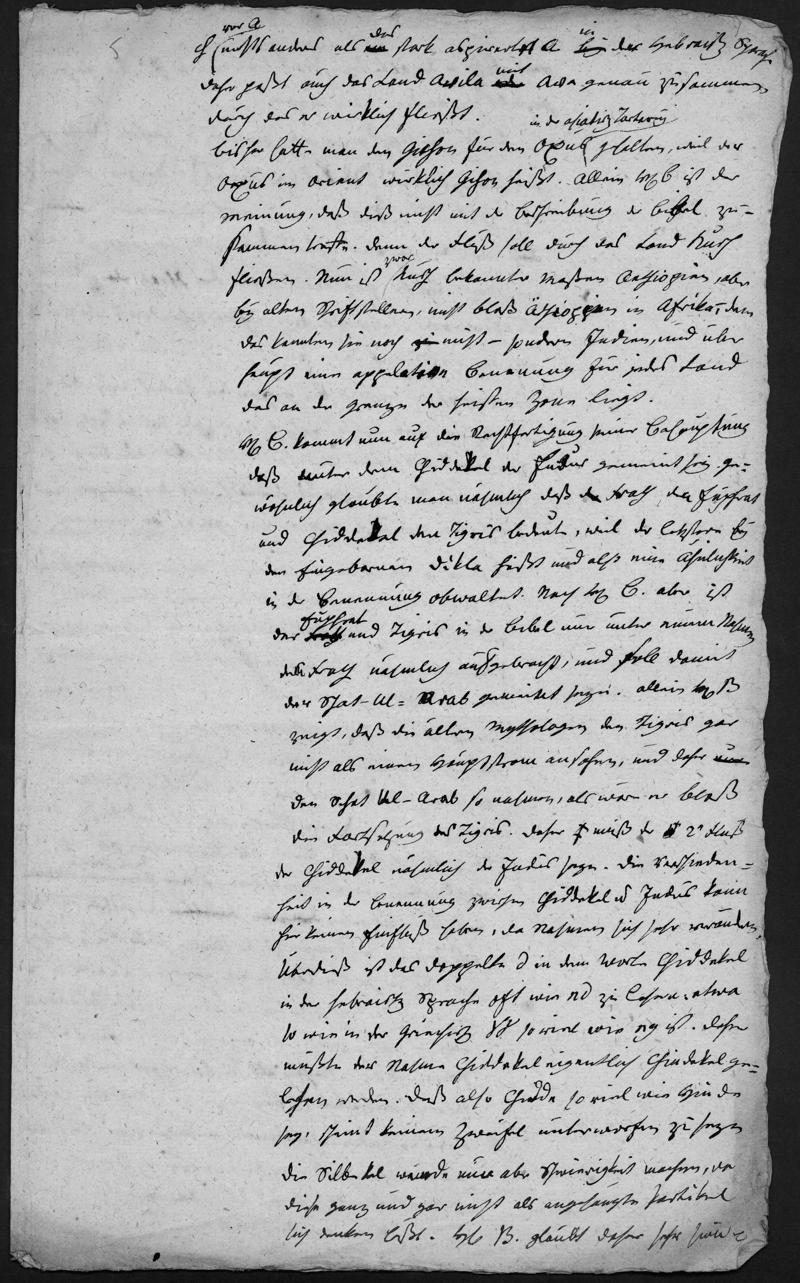 vor A
das in
ch nichts anders als ein stark aspirirtes A in der Hebraisch Sprach
daher paßt auch das Land Awila mit Awa genau zusammen,
durch das er wirklich fließt.
in der asiatisch Tartarey
bisher hatte man den Gihson für den Oxus gehalten, weil der
Oxus im Orient wirklich Gihon heißt. Allein H B ist der
meinung, daß dieß nicht mit der Beschreibung der Bibel zu-
sammen treffe. denn der Fluß soll durch das Land Kusch
zwar
fließen. Nun ist Kusch bekannter maßen Aethiopien, aber
bey alten Schriftstellern, nicht bloß Äthiopien in Afrika, denn
das kannten sie noch nicht – sondern Indien, und über
haupt eine appelativ Benennung für jedes Land
das an der Grenze der heißen Zone liegt.
H B. kommt nun auf die Rechtfertigung seiner Behauptung
daß unter dem Chiddekel der Indus gemeint sey. ge-
wöhnlich glaubte man nähmlich daß der Frath den Euphrat
und Chiddekel den Tigris bedeute, weil der letztere bey
den Eingebornen Dikla heißt und also eine Ähnlichkeit
in der Benennung obwaltet. Nach H B. aber ist
Euphrat
der Frath und Tigris in der Bibel nur unter einem Nahmen
dem Frath nähmlich aufgebracht, und soll damit
der Schat-Ul-Arab gemeint seyn. allein H B
zeigt, daß die ältern Mythologen den Tigris gar
nicht als einen Hauptstrom ansahen, und daher
den Schat Ul-Arab so nahmen, als wäre er bloß
die Fortsetzung des Tigris. Daher muß der 2te Fluß
der Chiddekel nähmlich der Indus seyn. die Verschieden-
heit in der Benennung zwischen Chiddekel u Indus kann
hier keinen Einfluß haben, da Nahmen sich sehr verändern,
Überdieß ist das doppelte d in dem Worte Chiddekel
in der hebraisch Sprache oft wie nd zu lesen, etwa
so wie in der Griechisch γγ so viel wie ng ist. Daher
müßte der Nahme Chiddekel eigentlich Chindekel ge-
lesen werden. Daß also Chidde so viel wie Hinde
sey, scheint keinem Zweifel unterworfen zu seyn
die Silbe kel würde nun aber Schwierigkeit machen, da
diese ganz und gar nicht als angehängte Partikel
sich denken läßt. H B. glaubt daher sehr